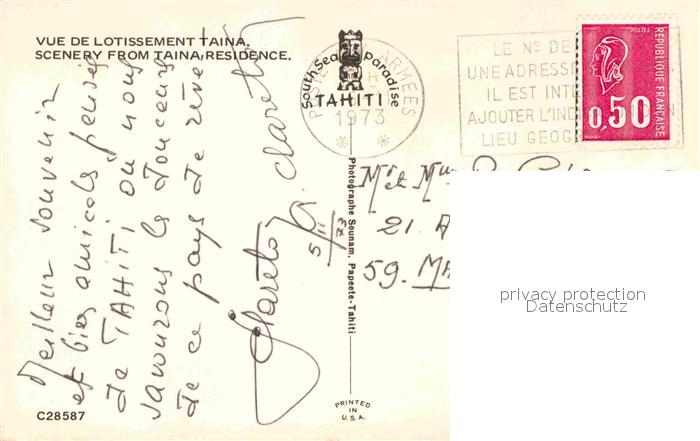 VUE DE LOTISSEMENT TAINA.
SCENERY FROM TAINA RESIDENCE.
Meilleur souvenir
et bien amicales pensées
de TAHITI où nous
savourons la douceur
de ce pays de rêve
Clareton
G. Clareton
5/11/73
South Sea Paradise
TAHITI
POSTE ARMEES
1973
LE Nº DE
UNE ADRESSE
IL EST
AJOUTER L'IND
LIEU GEOG
POSTES
REPUBLIQUE FRANÇAISE
0,50
Mr et Mme
21.
59. MA
Photographe Sounam, Papeete-Tahiti
privacy protection
Datenschutz
PRINTED
IN
U.S.A.
C28587